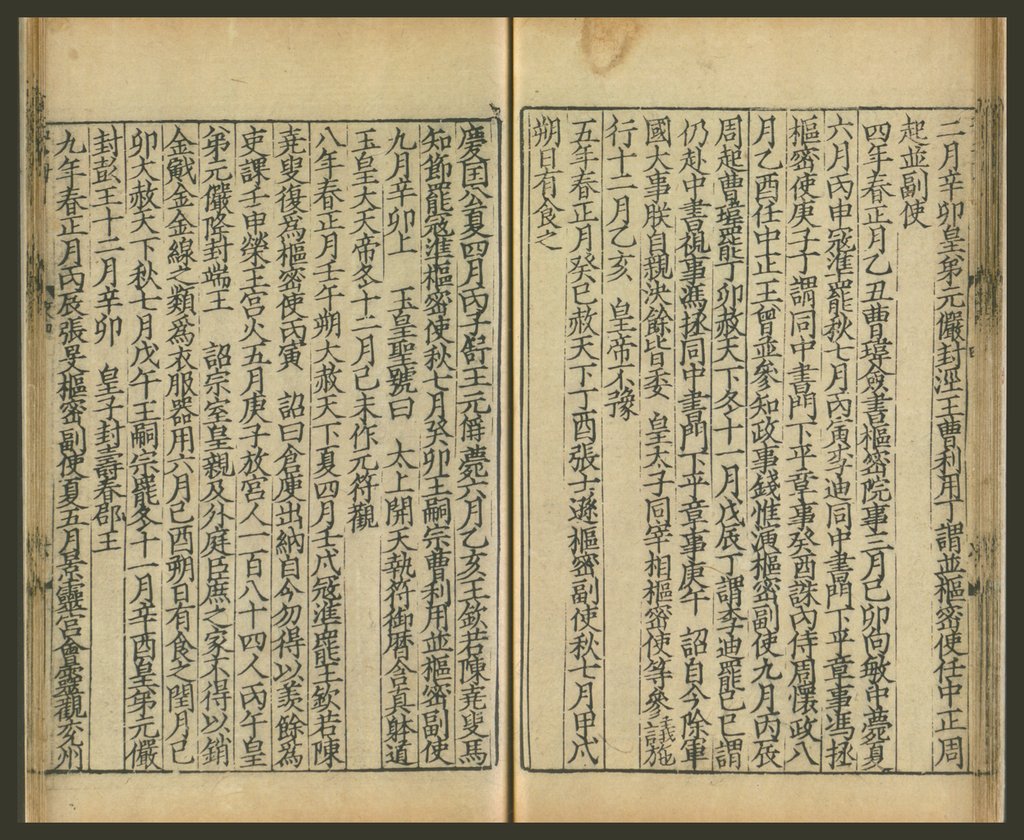 二月辛卯皇弟元儼封涇王曹利用丁謂並樞密使任中正周
起並副使
四年春正月乙丑曹瑋僉書樞密院事三月己卯向敏中薨夏
六月丙申寇準罷秋七月丙寅李迪同中書門下平章事馮拯
樞密使庚子子謂同中書門下平章事癸酉誅内侍周懷政八
月乙酉任中正王曾並參知政事錢惟演樞密副使九月丙辰
周起曹瑋罷丁卯赦天下冬十一月戊辰丁謂李迪罷己巳謂
仍赴中書視事馮拯同中書門下平章事庚午 詔自今除軍
國大事朕自親決餘皆委 皇太子同宰相樞密使等參議施
行十二月乙亥 皇帝不豫
五年春正月癸巳赦天下丁酉張士遜樞密副使秋七月甲戌
朔日有食之
慶国公夏四月丙子舒王元偁薨六月乙亥王欽若陳堯叟馬
知節罷寇準樞密使秋七月癸卯王嗣宗曹利用並樞密副使
九月辛卯上 玉皇聖號曰 太上開天執符御曆含真躰道
玉皇大天帝冬十二月己未作元符觀
八年春正月壬午朔大赦天下夏四月壬戌寇準罷王欽若陳
堯叟復爲樞密使丙寅 詔曰倉庾出納自今勿得以羨餘爲
吏課壬申榮王宮火五月庚子放宮人一百八十四人丙午皇
弟元儼降封端王 詔宗室皇親及外庭臣庶之家不得以銷
金戭金金線之類爲衣服器用六月己酉朔日有食之閏月己
卯大赦天下秋七月戊午王嗣宗罷冬十一月辛酉皇弟元儼
封彭王十二月辛卯 皇子封壽春郡王
九年春正月丙辰張旻樞密副使夏五月景靈宮會靈觀兖州